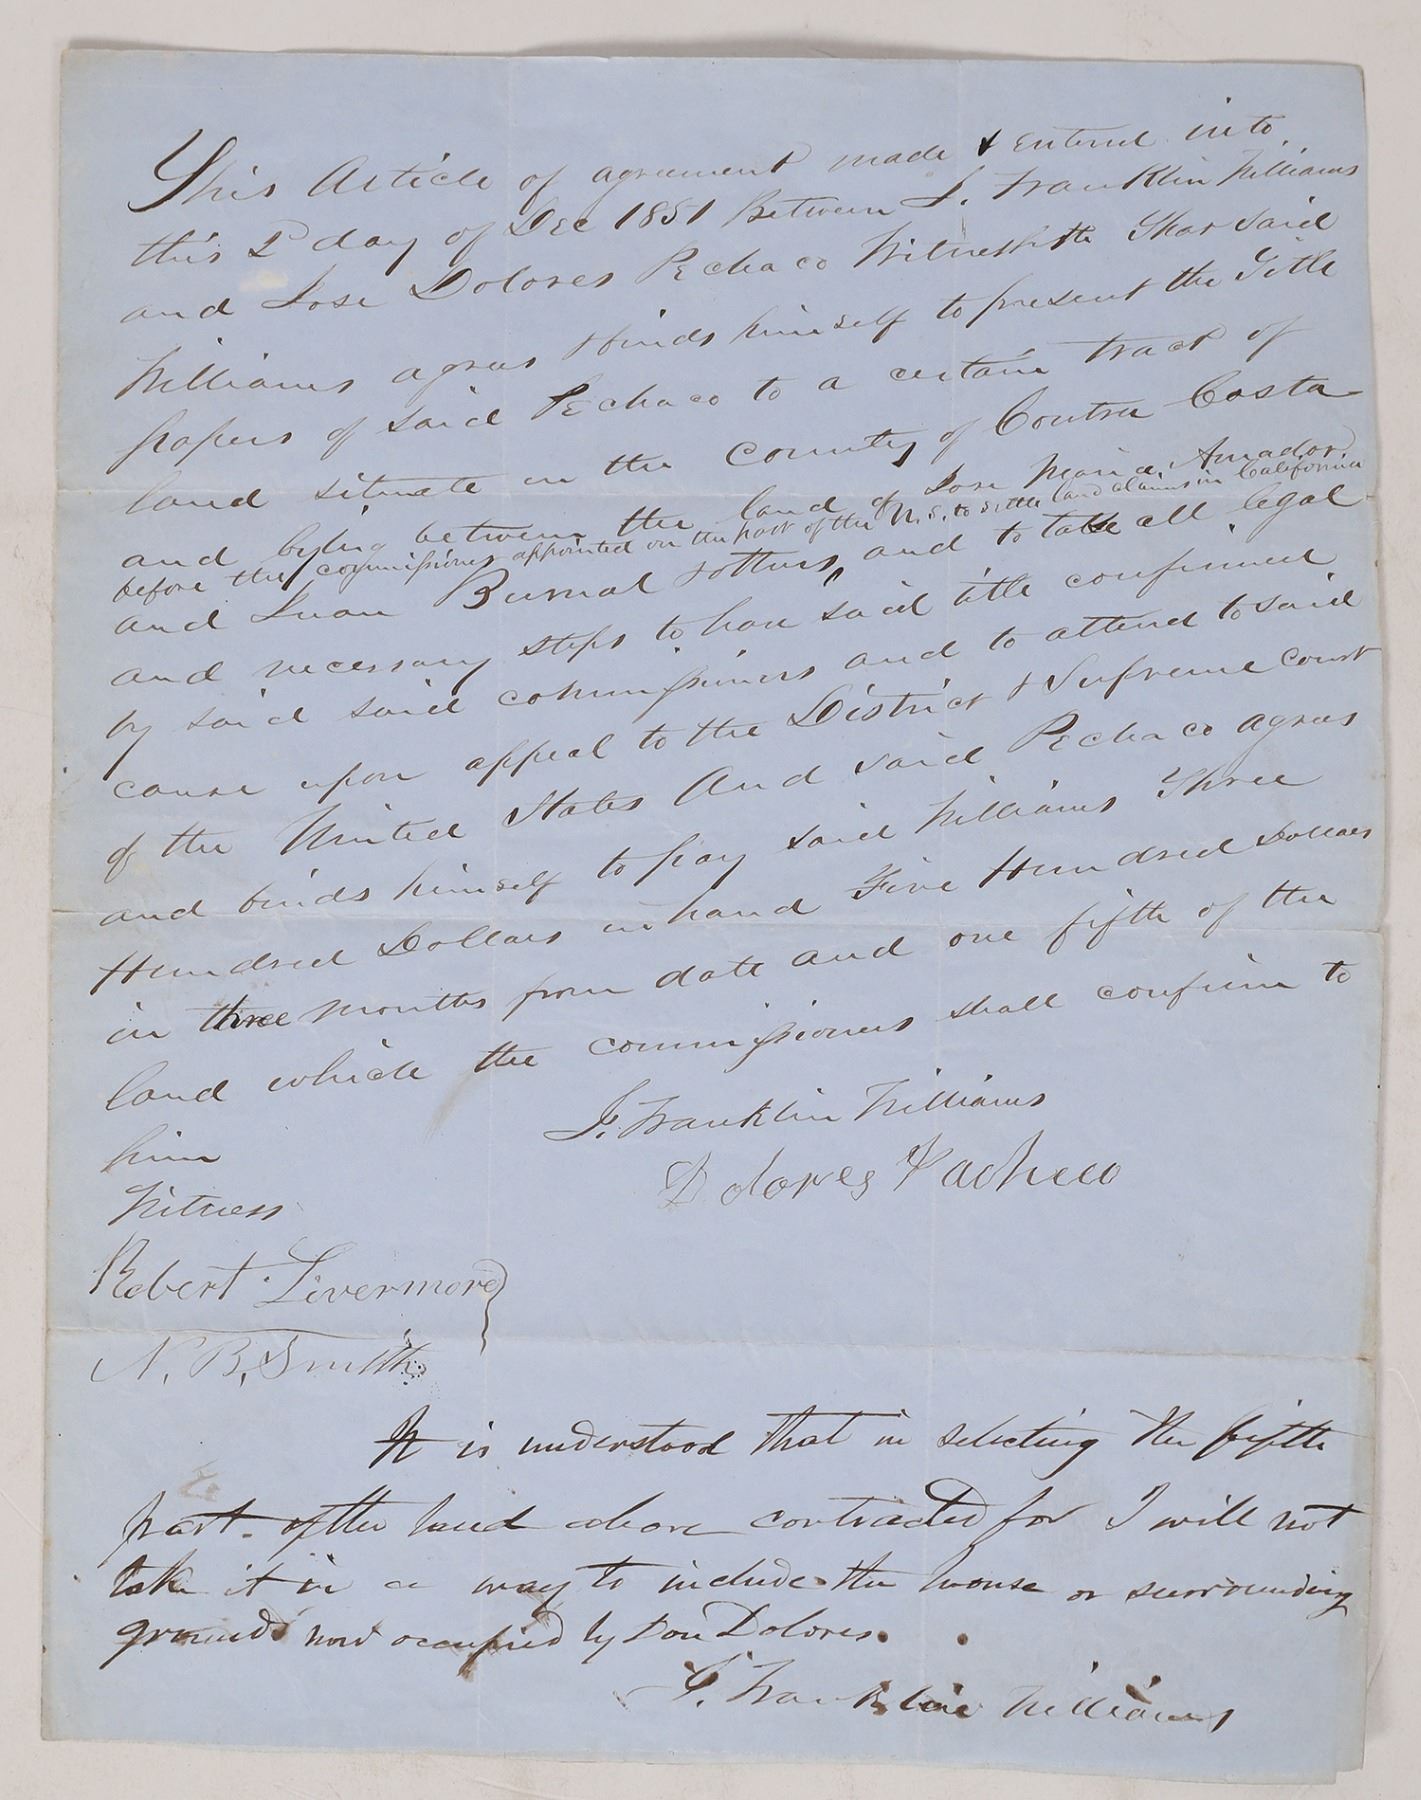 This Article of agreement made & entered into
this 2d day of Dec 1851 Between J. Franklin Williams
and Jose Dolores Pechaco Witnesseth That said
Williams agrees & binds himself to present the Title
papers of said Pechaco to a certain tract of
land situate in the County of Contra Costa
and lying between the land of Jose Maria Amador
before the commissioners appointed on the part of the U.S. to settle land claims in California
and Juan Bernal & others, and to take all legal
and necessary steps to have said title confirmed
by said said commissioners and to attend to said
cause upon appeal to the District & Supreme Court
of the United States And said Pechaco agrees
and binds himself to pay said Williams Three
Hundred Dollars in hand Five Hundred Dollars
in three months from date and one fifth of the
land which the commissioners shall confirm to
him
J. Franklin Williams
Dolores Pacheco
Witness
Robert Livermore
N. B. Smith
It is understood that in selecting the fifth
part of the land above contracted for I will not
take it in a way to include the house or surrounding
grounds now occupied by Don Dolores.
J. Franklin Williams